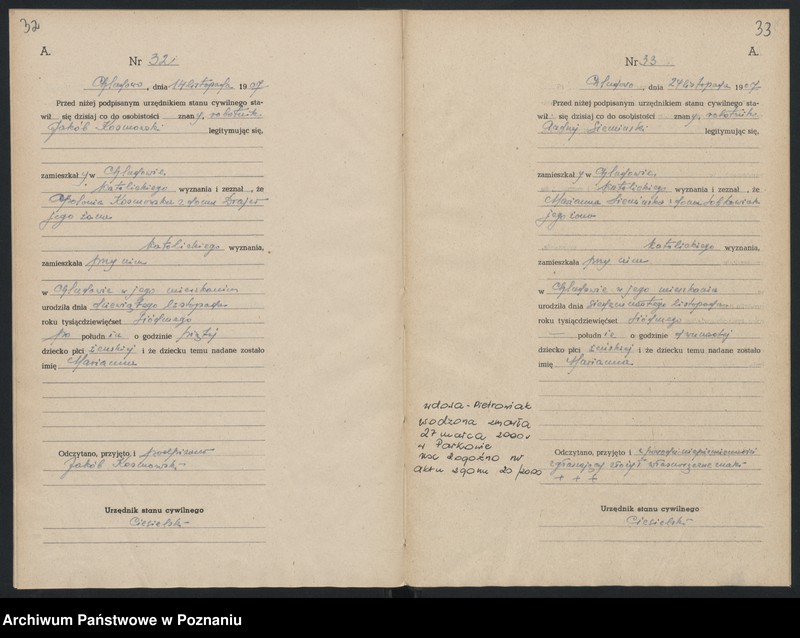 32
A.
Nr 32
, dnia 14 listopada 1907
Przed niżej podpisanym urzędnikiem stanu cywilnego sta-
wił się dzisiaj co do osobistości znany, robotnik
Jakób Kosmowski legitymując się,
zamieszkały w
katolickiego wyznania i zeznał, że
Kosmowska z domu
jego żona
katolickiego wyznania,
zamieszkała przy nim
w w jego mieszkaniu
urodziła dnia dziewiątego listopada
roku tysiącdziewięćset siódmego
po południu o godzinie piątej
dziecko płci żeńskiej i że dziecku temu nadane zostało
imię Marianna
Odczytano, przyjęto i podpisano
Jakób Kosmowski
Urzędnik stanu cywilnego
Ciesielski
33
A.
Nr 33
, dnia 24 listopada 1907
Przed niżej podpisanym urzędnikiem stanu cywilnego sta-
wił się dzisiaj co do osobistości znany, robotnik
legitymując się,
zamieszkały w
katolickiego wyznania i zeznał, że
Marianna z domu
jego żona
katolickiego wyznania,
zamieszkała przy nim
w w jego mieszkaniu
urodziła dnia siedemnastego listopada
roku tysiącdziewięćset siódmego
— południe o godzinie dwunastej
dziecko płci żeńskiej i że dziecku temu nadane zostało
imię Marianna
wdowa - Pietrowiak
urodzona zmarła
27 marca 2000 r
w Parkowie
usc Rogoźno nr
aktu zgonu 20/2000
Odczytano, przyjęto i z powodu niepiśmienności
+ + +
Urzędnik stanu cywilnego
Ciesielski
Archiwum Państwowe w Poznaniu